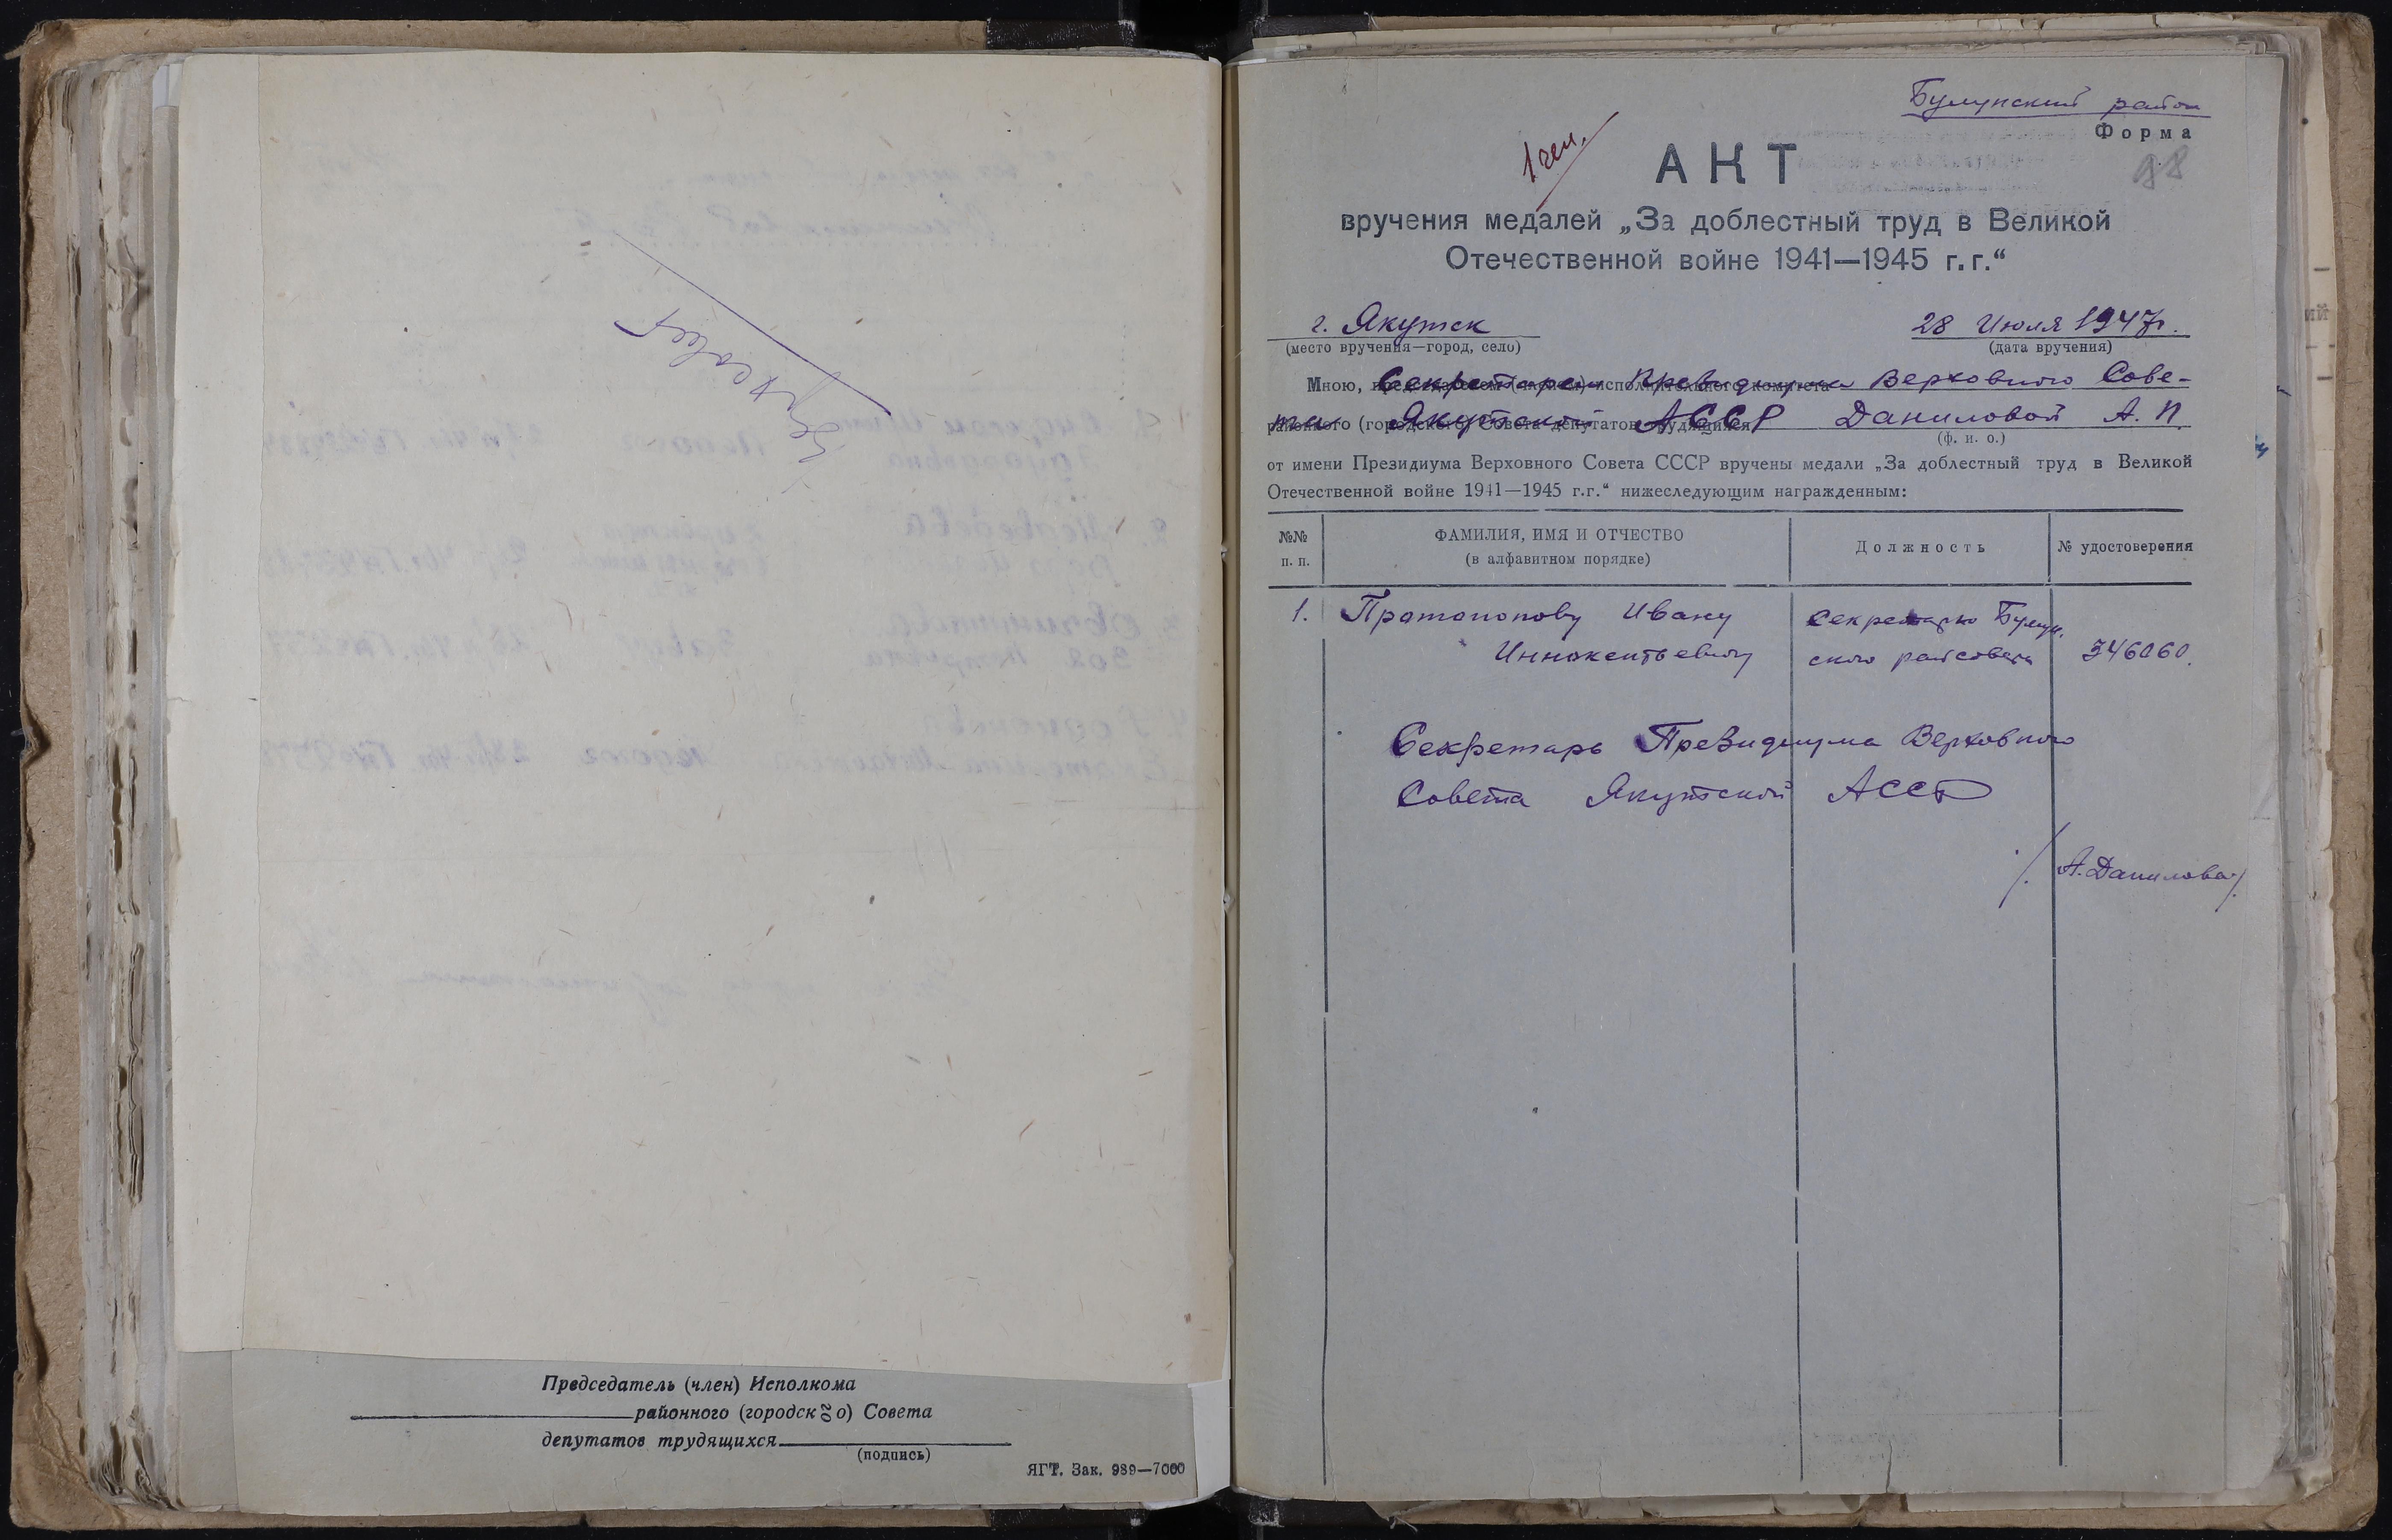 Председатель (член) Исполкома
районного (городского) Совета
депутатов трудящихся
(подпись)
ЯГТ. Зак. 989—7000
Булунский район
Форма
1 чел.
98
АКТ
вручения медалей „За доблестный труд в Великой
Отечественной войне 1941—1945 г.г.“
г. Якутск
28 Июля 1947г.
(место вручения—город, село)
(дата вручения)
Мною, Секретарем Президиума Верховного Сове-
та Якутской АССР Даниловой А. П.
(ф. и. о.)
от имени Президиума Верховного Совета СССР вручены медали „За доблестный труд в Великой
Отечественной войне 1941—1945 г.г.“ нижеследующим награжденным:
№№ п. п.
ФАМИЛИЯ, ИМЯ И ОТЧЕСТВО
(в алфавитном порядке)
Должность
№ удостоверения
1. Протопопову Ивану Секретарю Булун-
Иннокентьевичу ского райсовета 346060.
Секретарь Президиума Верховного
Совета Якутской АССР
/А. Данилова/.